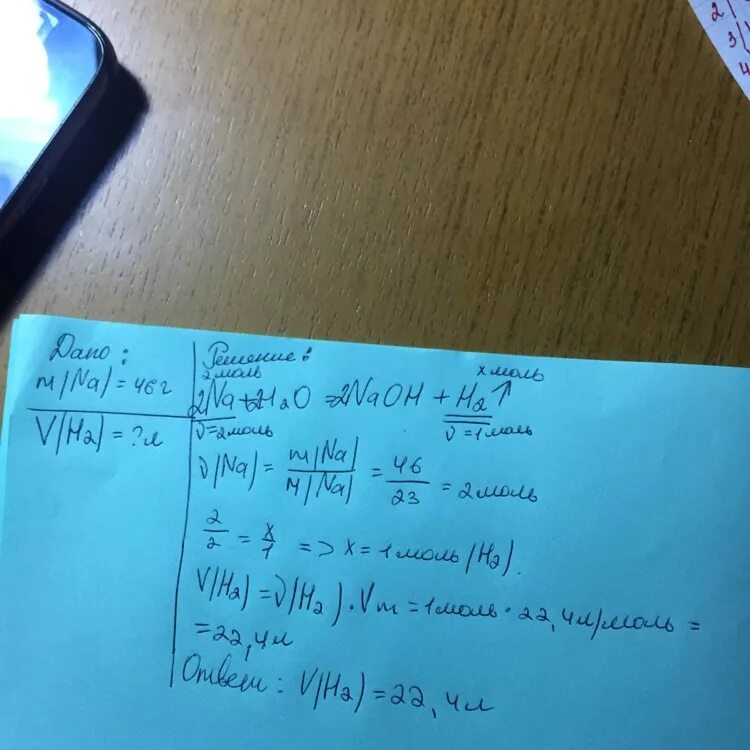 Дано:
m(Na) = 46г
V(H₂) = ?л
Решение:
2моль
x моль
2Na + 2H₂O = 2NaOH + H₂↑
ν = 2моль
ν = 1моль
ν(Na) = m(Na) / M(Na) = 46 / 23 = 2моль
2/2 = x/1 => x = 1моль (H₂).
V(H₂) = ν(H₂) · Vm = 1моль · 22,4л/моль =
= 22,4л
Ответ: V(H₂) = 22,4л
2
3
4